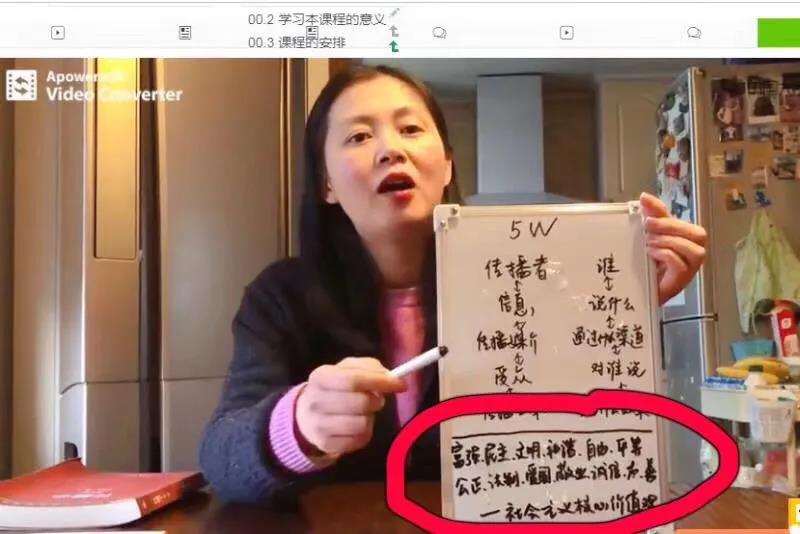 00.2 学习本课程的意义
00.3 课程的安排
Apowersoft
Video Converter
5W
传播者 谁
信息 说什么
传播媒介 通过什么渠道
受众 对谁说
富强.民主.文明.和谐.自由.平等
公正.法制.爱国.敬业.诚信.友善
—社会主义核心价值观